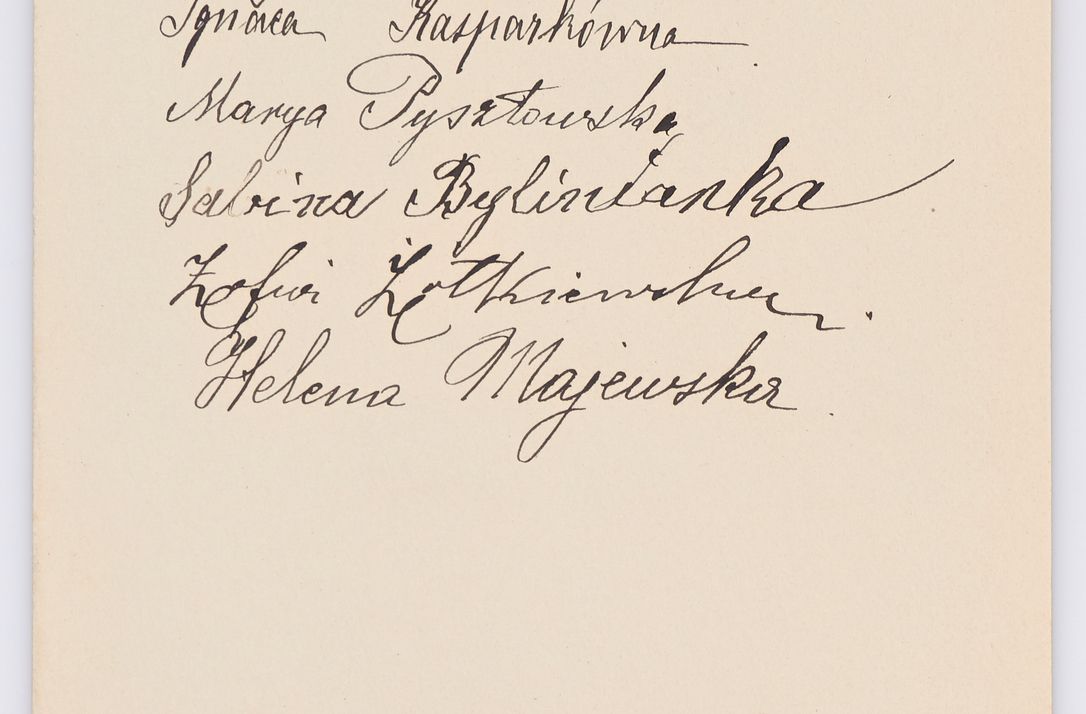 Ignăca Kasparkówna
Marya Pysztowska
Sabina Bylinianka
Zofia Żotkiewska.
Helena Majewska.